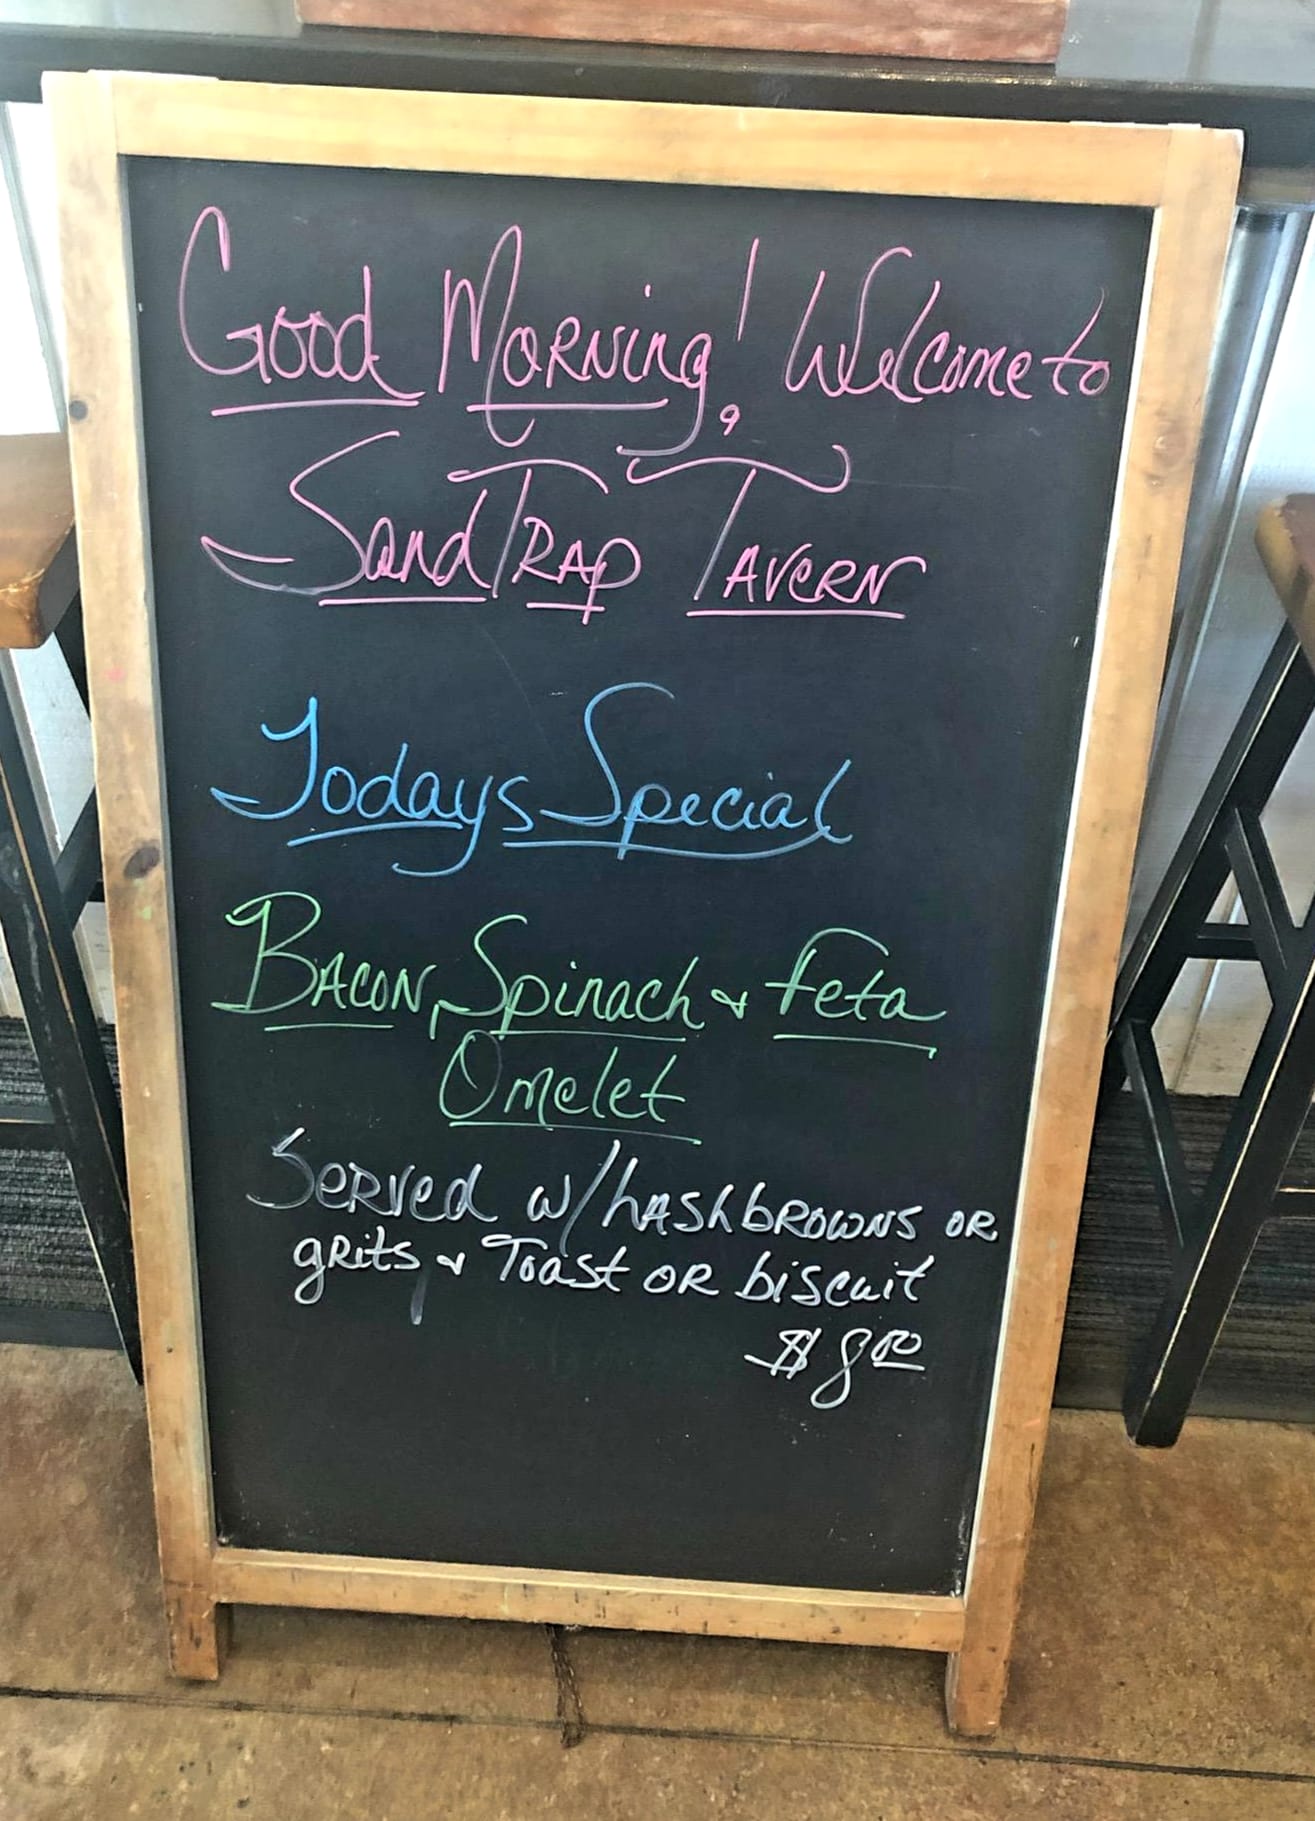 Good Morning! Welcome to
Sand Trap Tavern
Todays Special
Bacon, Spinach & Feta
Omelet
Served w/ hashbrowns or
grits & Toast or biscuit
$8.00